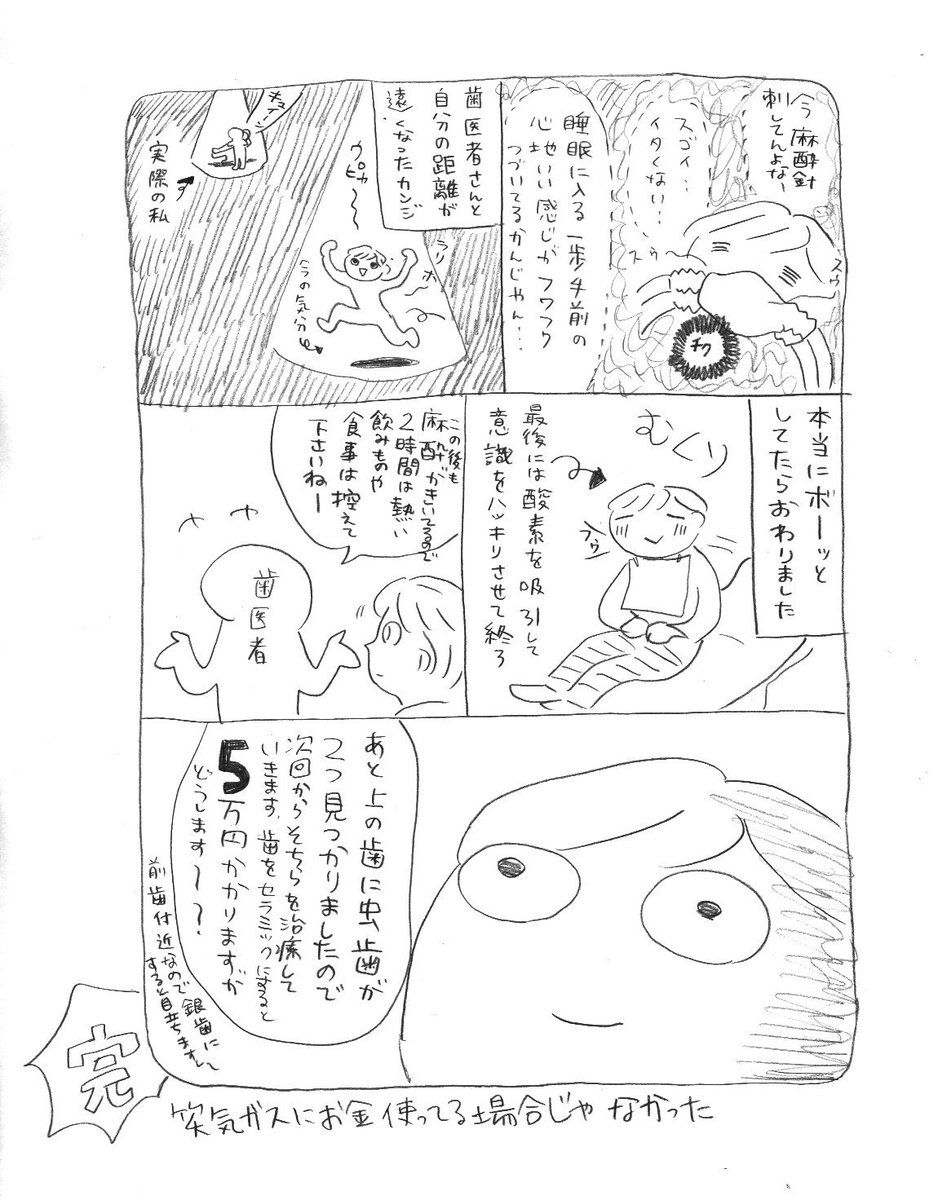 今麻酔針
刺してんよな…
スゴイ…
イタくない…
スゥ
スゥ
チク
睡眠に入る一歩手前の
心地いい感じがフワフワ
つづいてるかんじやん…
歯医者さんと
自分の距離が
遠くなったカンジ
ウヒョ〜〜
ラリホ〜
心の気分
キュイーン
実際の私
本当にボーッと
してたらおわりました
むくり
フゥ
最後には酸素を吸引して
意識をハッキリさせて終る
この後も
麻酔がきいてるので
2時間は熱い
飲みものや
食事は控えて
下さいねー
歯医者
あと上の歯に虫歯が
2つ見つかりましたので
次回からそちらを治療して
いきます。歯をセラミックにすると
5万円かかりますが
どうします〜〜?
前歯付近なので銀歯に
すると目立ちますし〜
完
笑気ガスにお金使ってる場合じゃなかった